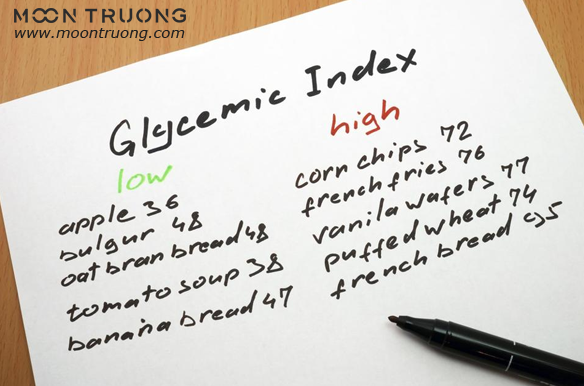 MOON TRUONG
www.moontruong.com
Glycemic Index
low
apple 36
bulgur 48
oat bran bread 48
tomato soup 38
banana bread 47
high
corn chips 72
french fries 76
vanila wafers 77
puffed wheat 74
french bread 95